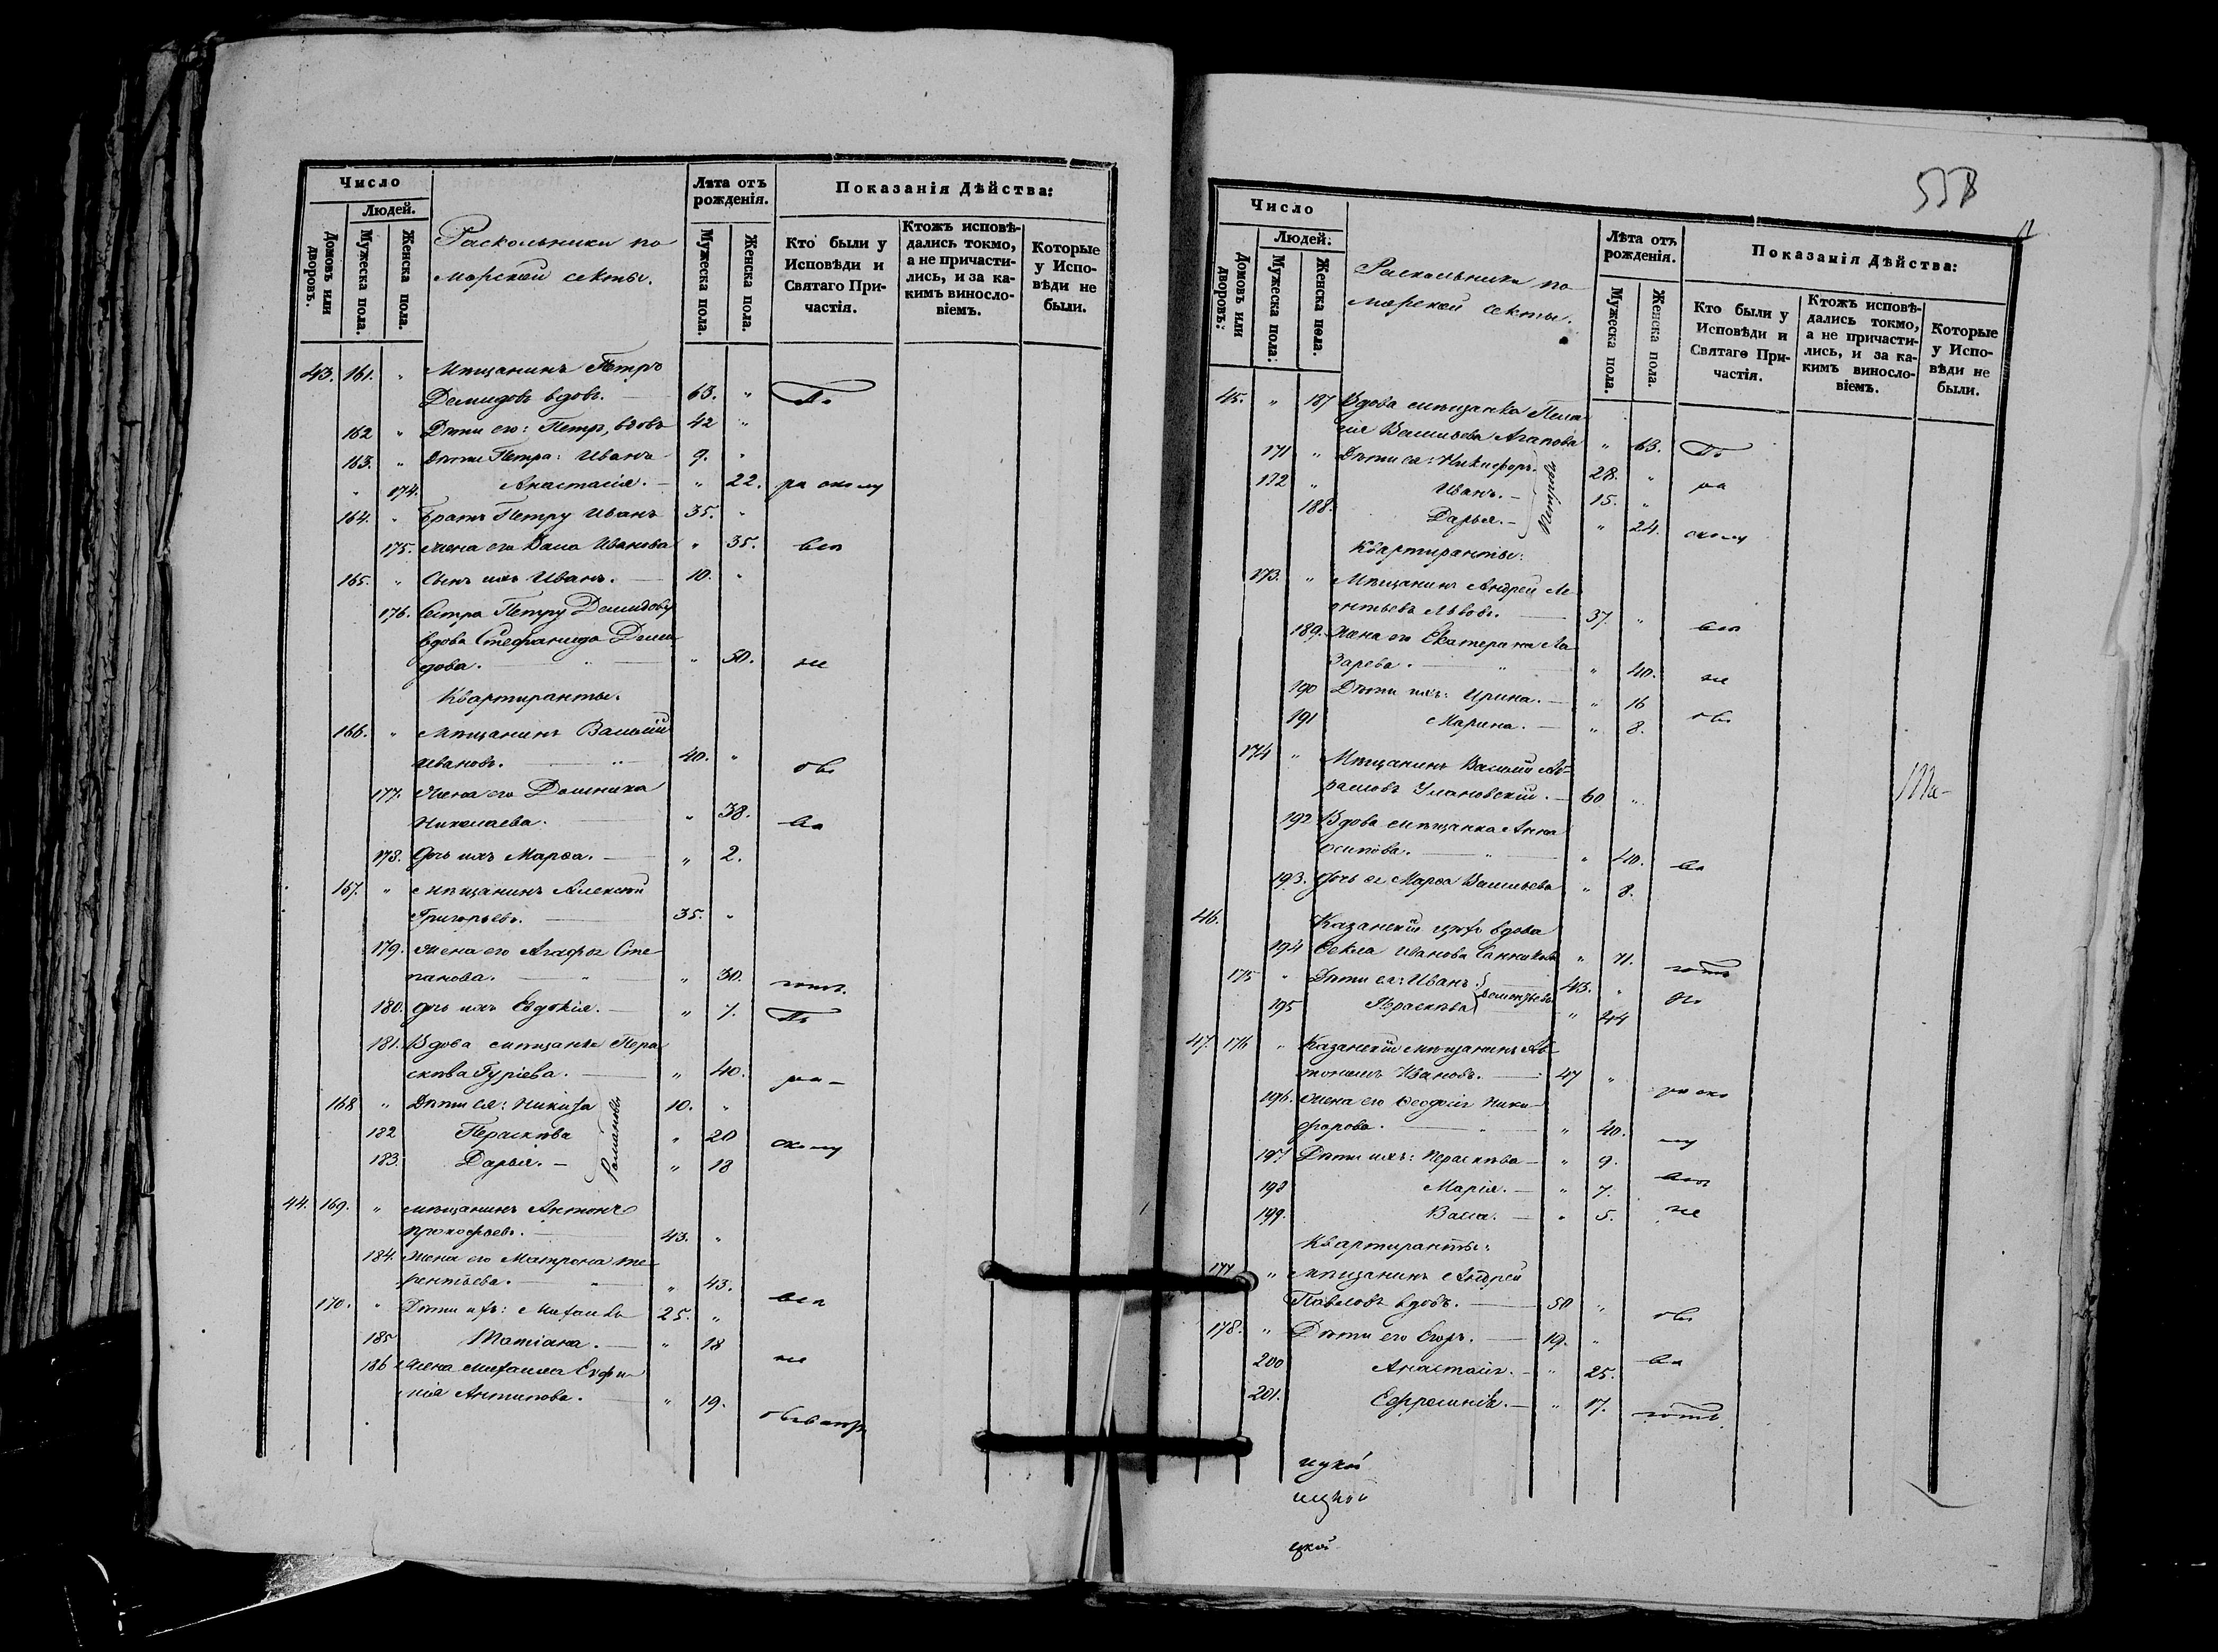 Число
Людей.
Домовъ или дворовъ.
Мужеска пола.
Женска пола.
Раскольники по
морской секты.
Лѣта отъ рожденія.
Мужеска пола.
Женска пола.
Показанія Дѣйства:
Кто были у Исповѣди и Святаго Причастія.
Ктожъ исповѣдались токмо, а не причастились, и за какимъ винословіемъ.
Которые у Исповѣди не были.
43. 161. " Мѣщанинъ Петръ
Демидовъ вдовъ. 63. " По
162 " Дѣти его: Петръ, вдовъ 42 "
163. " Дѣти Петра: Иванъ 9. "
" 174. Анастасія. " 22. расколу
164. " Братъ Петру Иванъ 35. "
175. Жена его Васса Иванова " 35. все
165. " Сынъ ихъ Иванъ. 10. "
176. Сестра Петру Демидову
вдова Стефанида Деми
дова. " 50. не
Квартиранты.
166. " Мѣщанинъ Василій
Ивановъ. 40. "
177. Жена его Домника
Николаева. " 38.
178. Дочь ихъ Марѳа. " 2.
167. " Мѣщанинъ Алексѣй
Григорьевъ. 35. "
179. Жена его Агафья Сте
панова. " 30.
180. Дочь ихъ Евдокія. " 7. По
181. Вдова мѣщанка Пера
скѣва Гуріева. " 40. ра-
168 " Дѣти ея: Никита 10. "
182 Пераскѣва " 20 сколу
183. Дарья. " 18
Романовы
44. 169. " Мѣщанинъ Антонъ
Прокофьевъ. 43. "
184. Жена его Матрона Те
рентьева. " 43. все
170. " Дѣти ихъ: Михаилъ 25. "
185 Татіана. " 18 не
186 Жена Михаила Евфи
мія Антипова. " 19.
558
Число
Людей.
Домовъ или дворовъ.
Мужеска пола.
Женска пола.
Раскольники по
морской секты.
Лѣта отъ рожденія.
Мужеска пола.
Женска пола.
Показанія Дѣйства:
Кто были у Исповѣди и Святаго Причастія.
Ктожъ исповѣдались токмо, а не причастились, и за какимъ винословіемъ.
Которые у Исповѣди не были.
45. " 187 Вдова мѣщанка Пела
гія Васильева Агапова " 63. По
171 " Дѣти ея: Никифоръ. 28. " ра
172 " Иванъ. 15. "
188. Дарья. " 24. сколу
Петровы
Квартиранты:
173. " Мѣщанинъ Андрей Ле
онтьевъ Львовъ. 37. " все
189. Жена его Екатерина Ла
зарева. " 40. не
190 Дѣти ихъ: Ирина. " 16
191 Марина. " 8.
174 " Мѣщанинъ Василій Аб
рамовъ Улановскій. 60 "
192 Вдова мѣщанка Анна
Осипова. " 40.
193. Дочь ея Марѳа Васильева " 8.
46. Казанскій вдова
194 Ѳекла Иванова " 71.
175 " Дѣти ея: Иванъ 43. " По
195 Пераскѣва " 44
47. 176 " Казанскій мѣщанинъ Ав
тономъ Ивановъ. 47 " раско
196. Жена его Ѳеодосія Ники
форова. " 40. лу
197 Дѣти ихъ: Пераскѣва " 9.
198 Марія. " 7. все
199. Васса. " 5. не
Квартиранты:
177 " Мѣщанинъ Андрей
Павловъ вдовъ. 50 "
178. " Дѣти его Егоръ. 19. "
200 Анастасія. " 25.
201. Ефросинія. " 17.